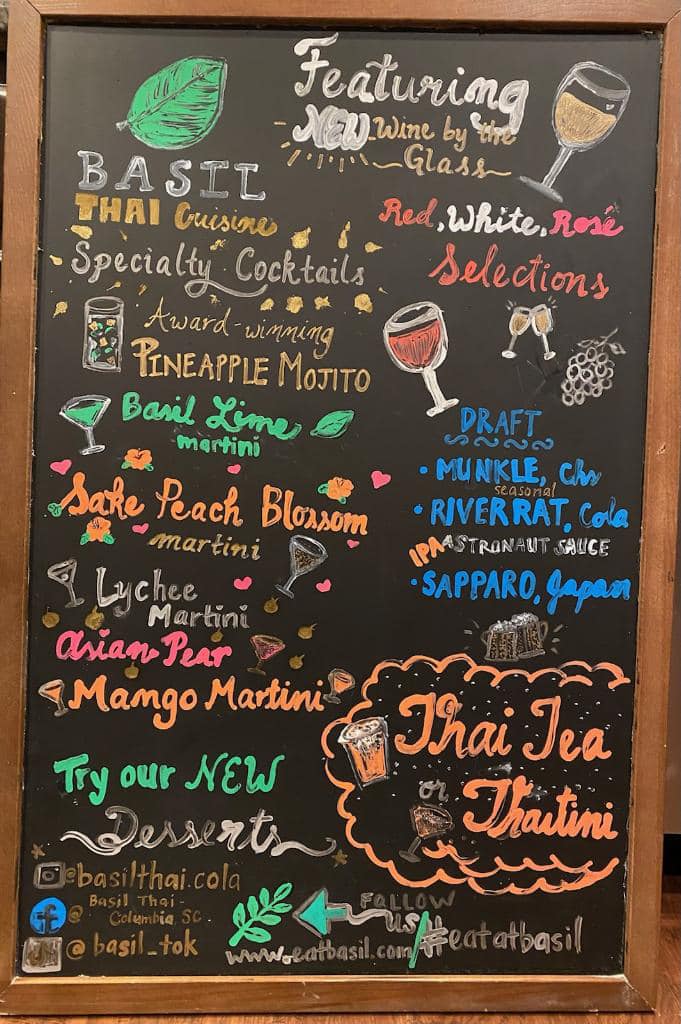 BASIL
THAI Cuisine
Specialty Cocktails
Award-winning
PINEAPPLE MOJITO
Basil Lime
martini
Sake Peach Blossom
martini
Lychee
Martini
Asian Pear
Mango Martini
Try our NEW
Desserts
@basilthai.cola
@ Basil Thai-
Columbia, SC.
@ basil_tok
Featuring
NEW Wine by the
Glass
Red, White, Rosé
Selections
DRAFT
• MUNKLE, Chs
seasonal
• RIVER RAT, Cola
IPA ASTRONAUT SAUCE
• SAPPARO, Japan
Thai Tea
or
Thaitini
FOLLOW
US
www.eatbasil.com/#eatatbasil